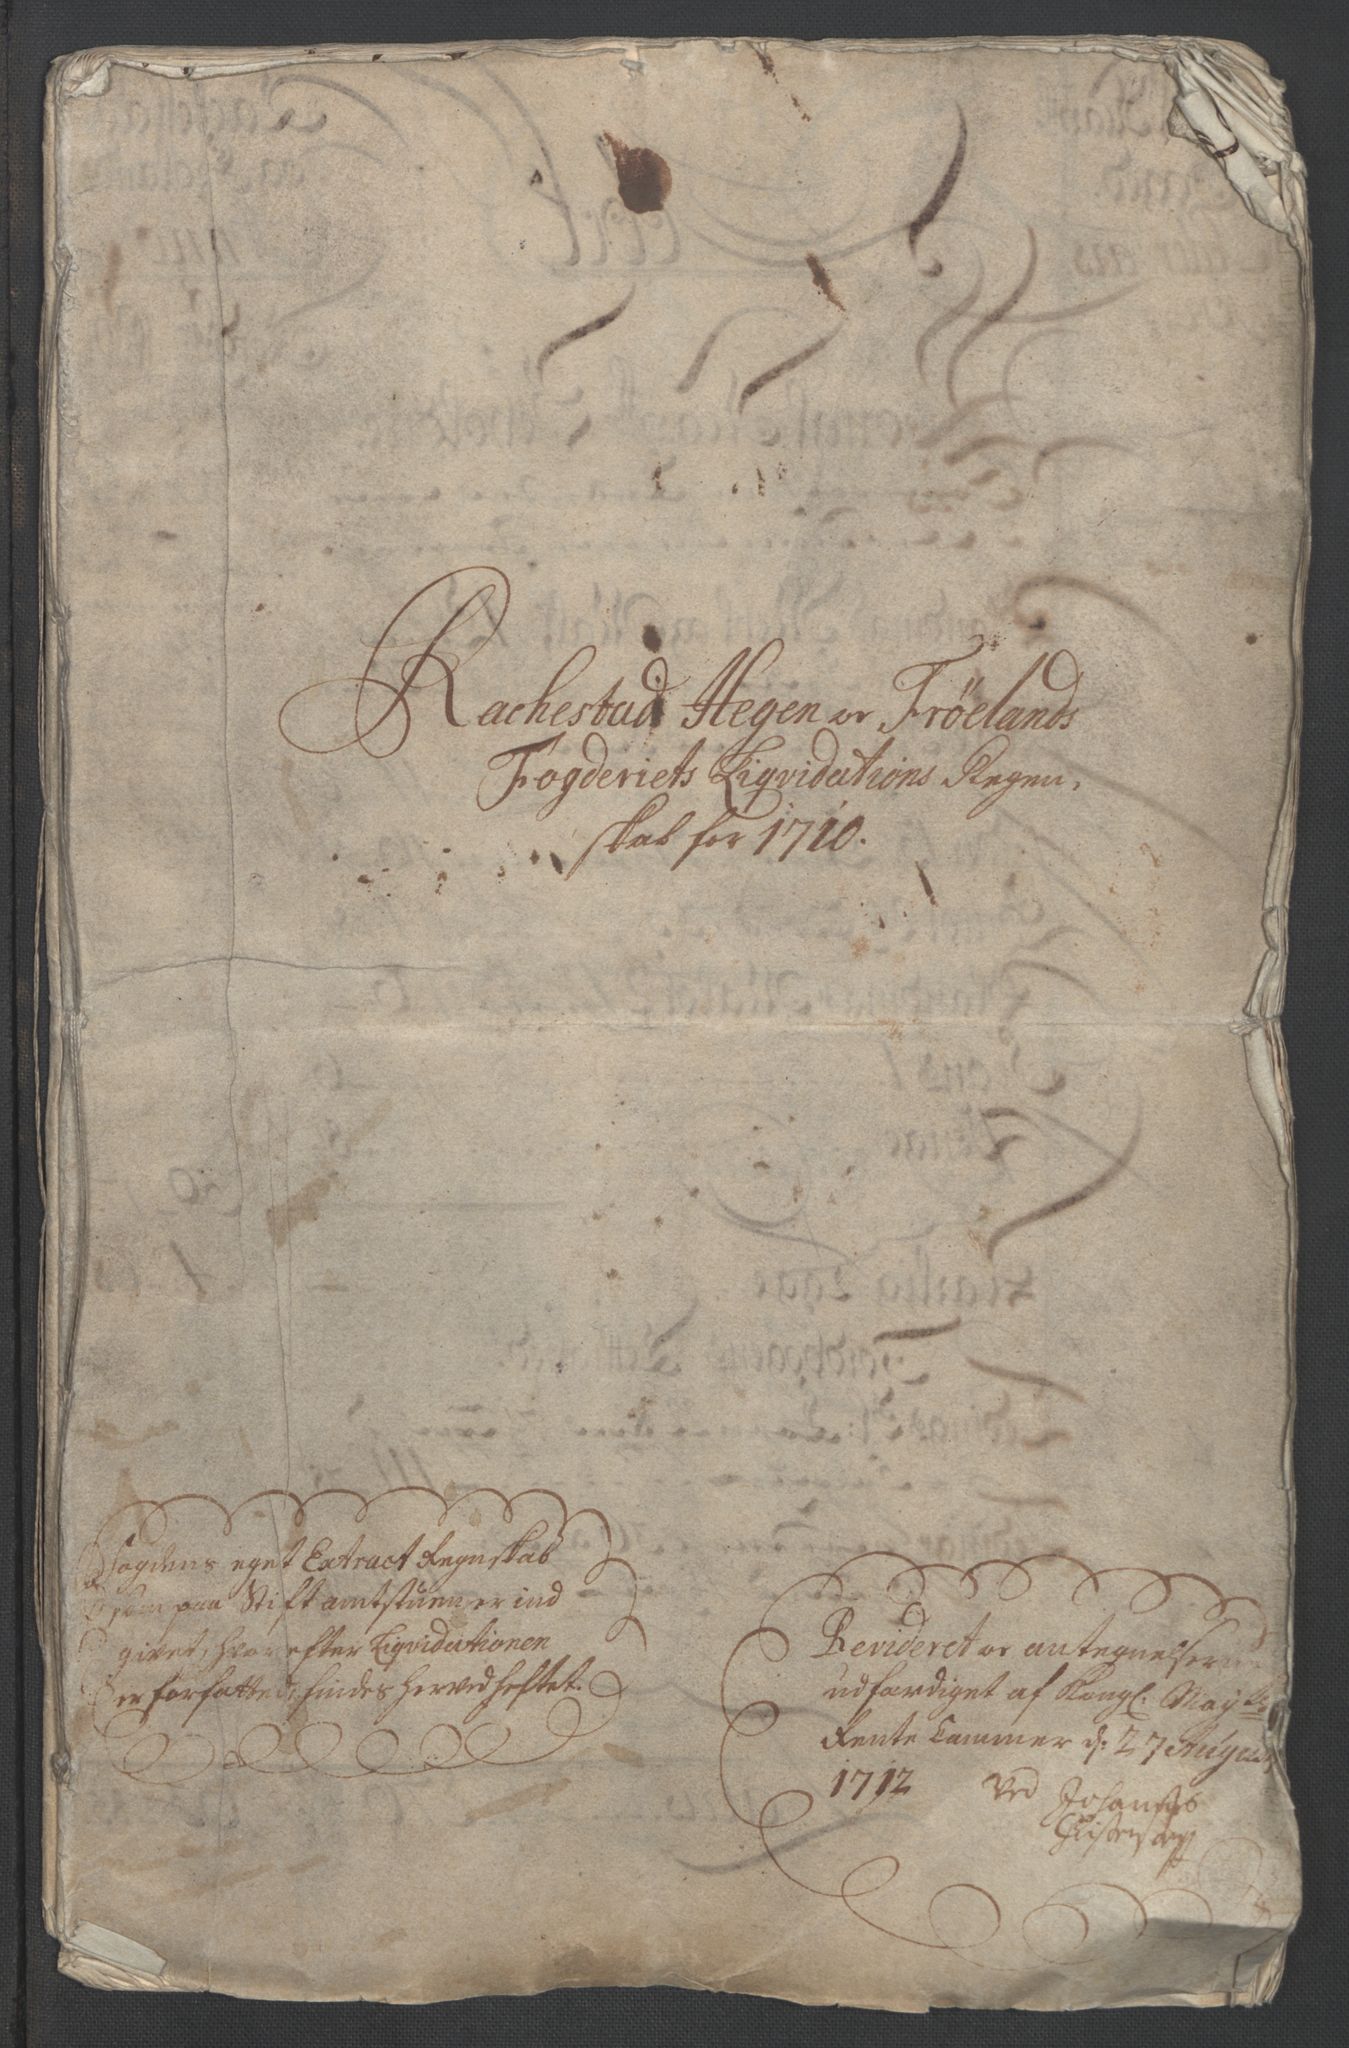 Rachestad Hegen or Fröelands
Fogderiets Liqvidations Regen,
skab for 1710.
Fogdens eget Extract Regnskab
som paa Stiftamtstuen er ind
givet, hvorefter Liqvidationen
er forfatted, findes herved heftet.
Revideret or antegnelserne
udfærdiget af Kongl. May
Rente Cammer d: 27 August
1712 ved Johannes